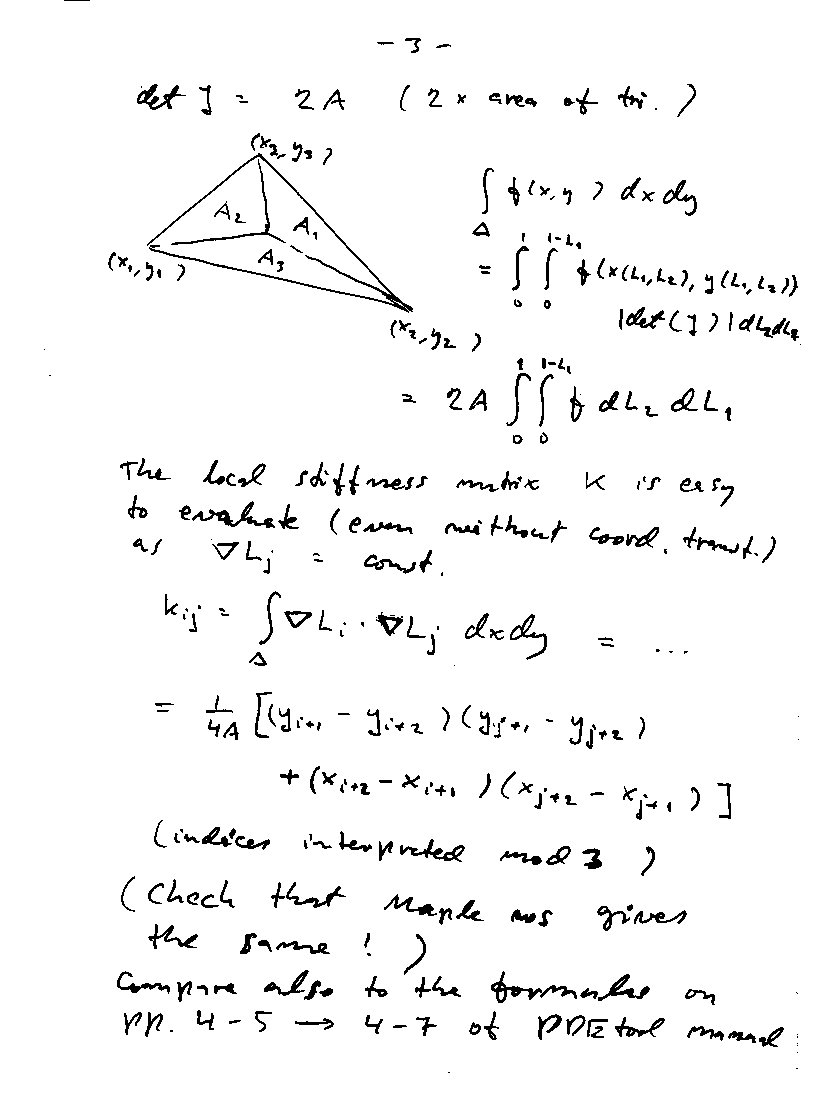 - 3 -
det J = 2A (2 x area of tri.)
(x₃, y₃)
A₂ A₁
A₃
(x₁, y₁)
(x₂, y₂)
∫_Δ f(x,y) dx dy
= ∫₀¹ ∫₀^{1-L₁} f(x(L₁,L₂), y(L₁,L₂))
|det(J)| dL₂dL₁
= 2A ∫₀¹ ∫₀^{1-L₁} f dL₂ dL₁
The local stiffness matrix K is easy
to evaluate (even without coord. transf.)
as ∇Lⱼ = const.
kᵢⱼ = ∫_Δ ∇Lᵢ · ∇Lⱼ dxdy = ...
= 1/4A [(yᵢ₊₁ - yᵢ₊₂)(yⱼ₊₁ - yⱼ₊₂)
+ (xᵢ₊₂ - xᵢ₊₁)(xⱼ₊₂ - xⱼ₊₁)]
(indices interpreted mod 3)
(Check that Maple gives
the same!)
Compare also to the formulas on
pp. 4-5 → 4-7 of PDE tool manual